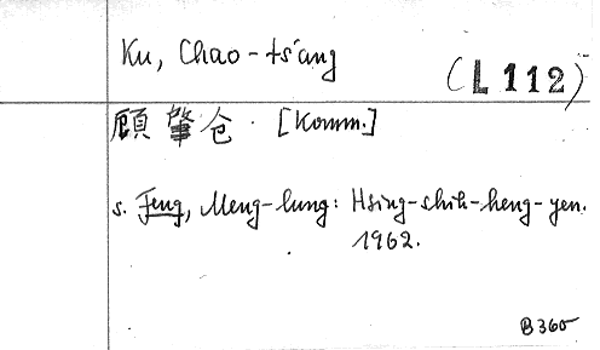 Ku, Chao-ts'ang
(L 112)
顧肇仓. [Komm.]
s. Feng, Meng-lung: Hsing-shih-heng-yen.
1962.
B 360